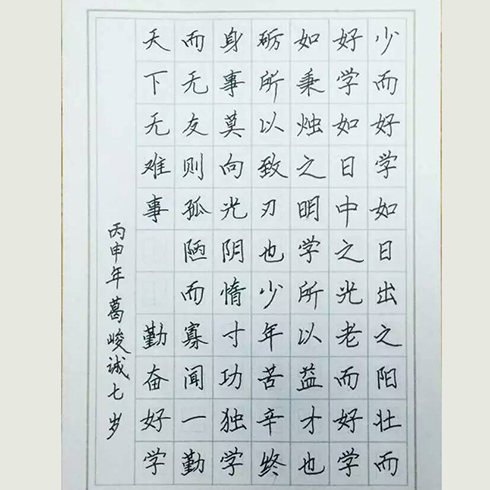 少而好学如日出之阳壮而
好学如日中之光老而好学
如秉烛之明学所以益才也
砺所以致刃也少年苦辛终
身事莫向光阴惰寸功独学
而无友则孤陋而寡闻一勤
天下无难事 勤奋好学
丙申年葛峻诚七岁